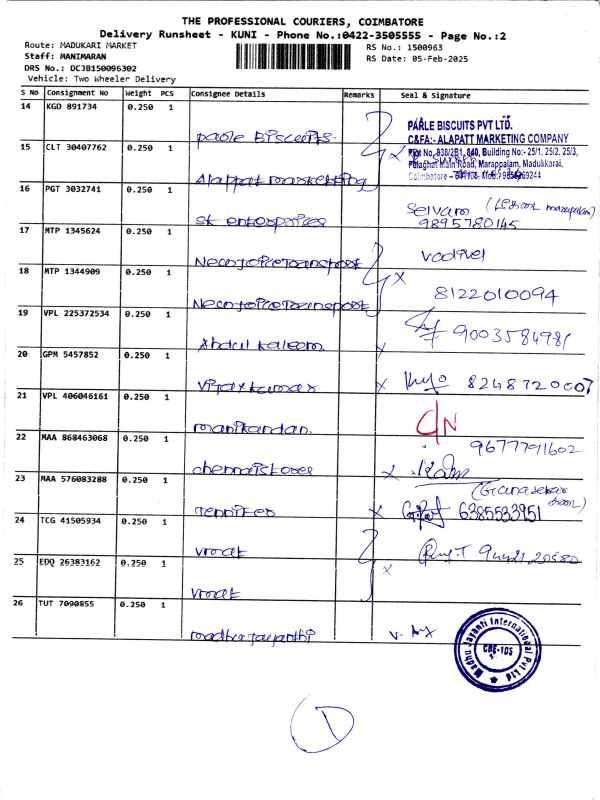 THE PROFESSIONAL COURIERS, COIMBATORE
Delivery Runsheet - KUNI - Phone No.:0422-3505555 - Page No.:2
Route: MADUKARI MARKET RS No.: 1500963
Staff: MANIMARAN RS Date: 05-Feb-2025
DRS No.: DCJB150096302
Vehicle: Two Wheeler Delivery
S No Consignment No Weight PCS Consignee Details Remarks Seal & Signature
14 KGD 891734 0.250 1 parle Biscuits
PARLE BISCUITS PVT LTD.
C&FA:- ALAPATT MARKETING COMPANY
Plot No. 838/2B1, 840, Building No:- 25/1, 25/2, 25/3,
Palaghat Main Road, Marappalam, Madukkarai,
15 CLT 30407762 0.250 1 Alappat marketting
16 PGT 3032741 0.250 1 sk enterprices
Selvam
9895780145
17 MTP 1345624 0.250 1
vadivel
18 MTP 1344909 0.250 1
8122010094
19 VPL 225372534 0.250 1 Abdul kaleem x
20 GPM 5457852 0.250 1 vijaykumar x 8248720007
21 VPL 406046161 0.250 1 manikandan.
C/N
22 MAA 868463068 0.250 1 chennai stores x
9677791602
23 MAA 576083288 0.250 1 Jennifer x
(Gunasekar
6385533951
24 TCG 41505934 0.250 1 vroat
25 EDQ 26383162 0.250 1 vroat x
26 TUT 7090855 0.250 1 madhu jayanthi
Madhu Jayanti International Pvt Ltd
CBE-105
1